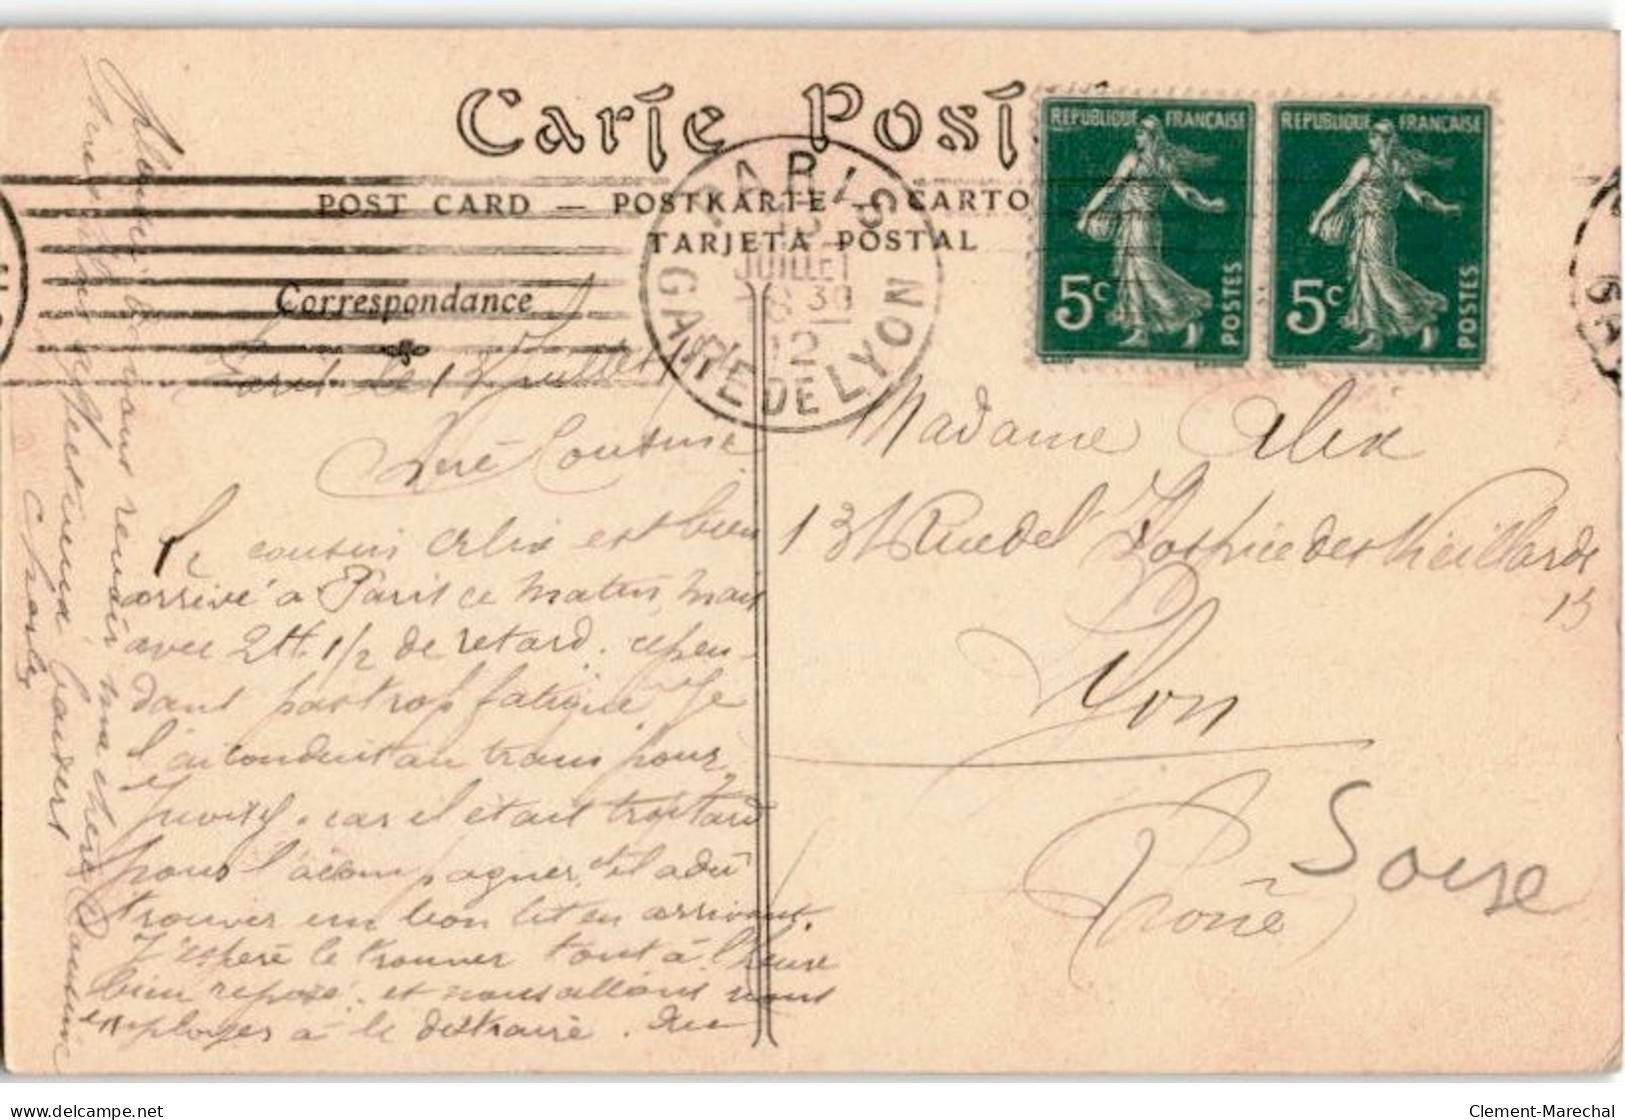 Carte Post
POST CARD — POSTKARTE — CARTO
TARJETA POSTAL
Correspondance
PARIS
12
JUILLET
8 30
12
GARE DE LYON
REPUBLIQUE FRANÇAISE
5c
POSTES
REPUBLIQUE FRANÇAISE
5c
POSTES
Paris le 12 Juillet
Chère Cousine
Le cousin Alix est bien
arrivé à Paris ce matin, mais
avec 2H. 1/2 de retard. cepen-
dant pas trop fatigué. Je
l'ai conduit au train pour
Juvisy. car il était trop tard
pour l'accompagner, et il a dû
trouver un bon lit en arrivant.
J'espère le trouver tout à l'heure
bien reposé. et nous allons nous
employer à le distraire.
vous revoir ma chère Cousine
affectueux
Charles
Madame Alix
131 Rue de l'Hospice des Vieillards
13
Lyon
(Rhône)